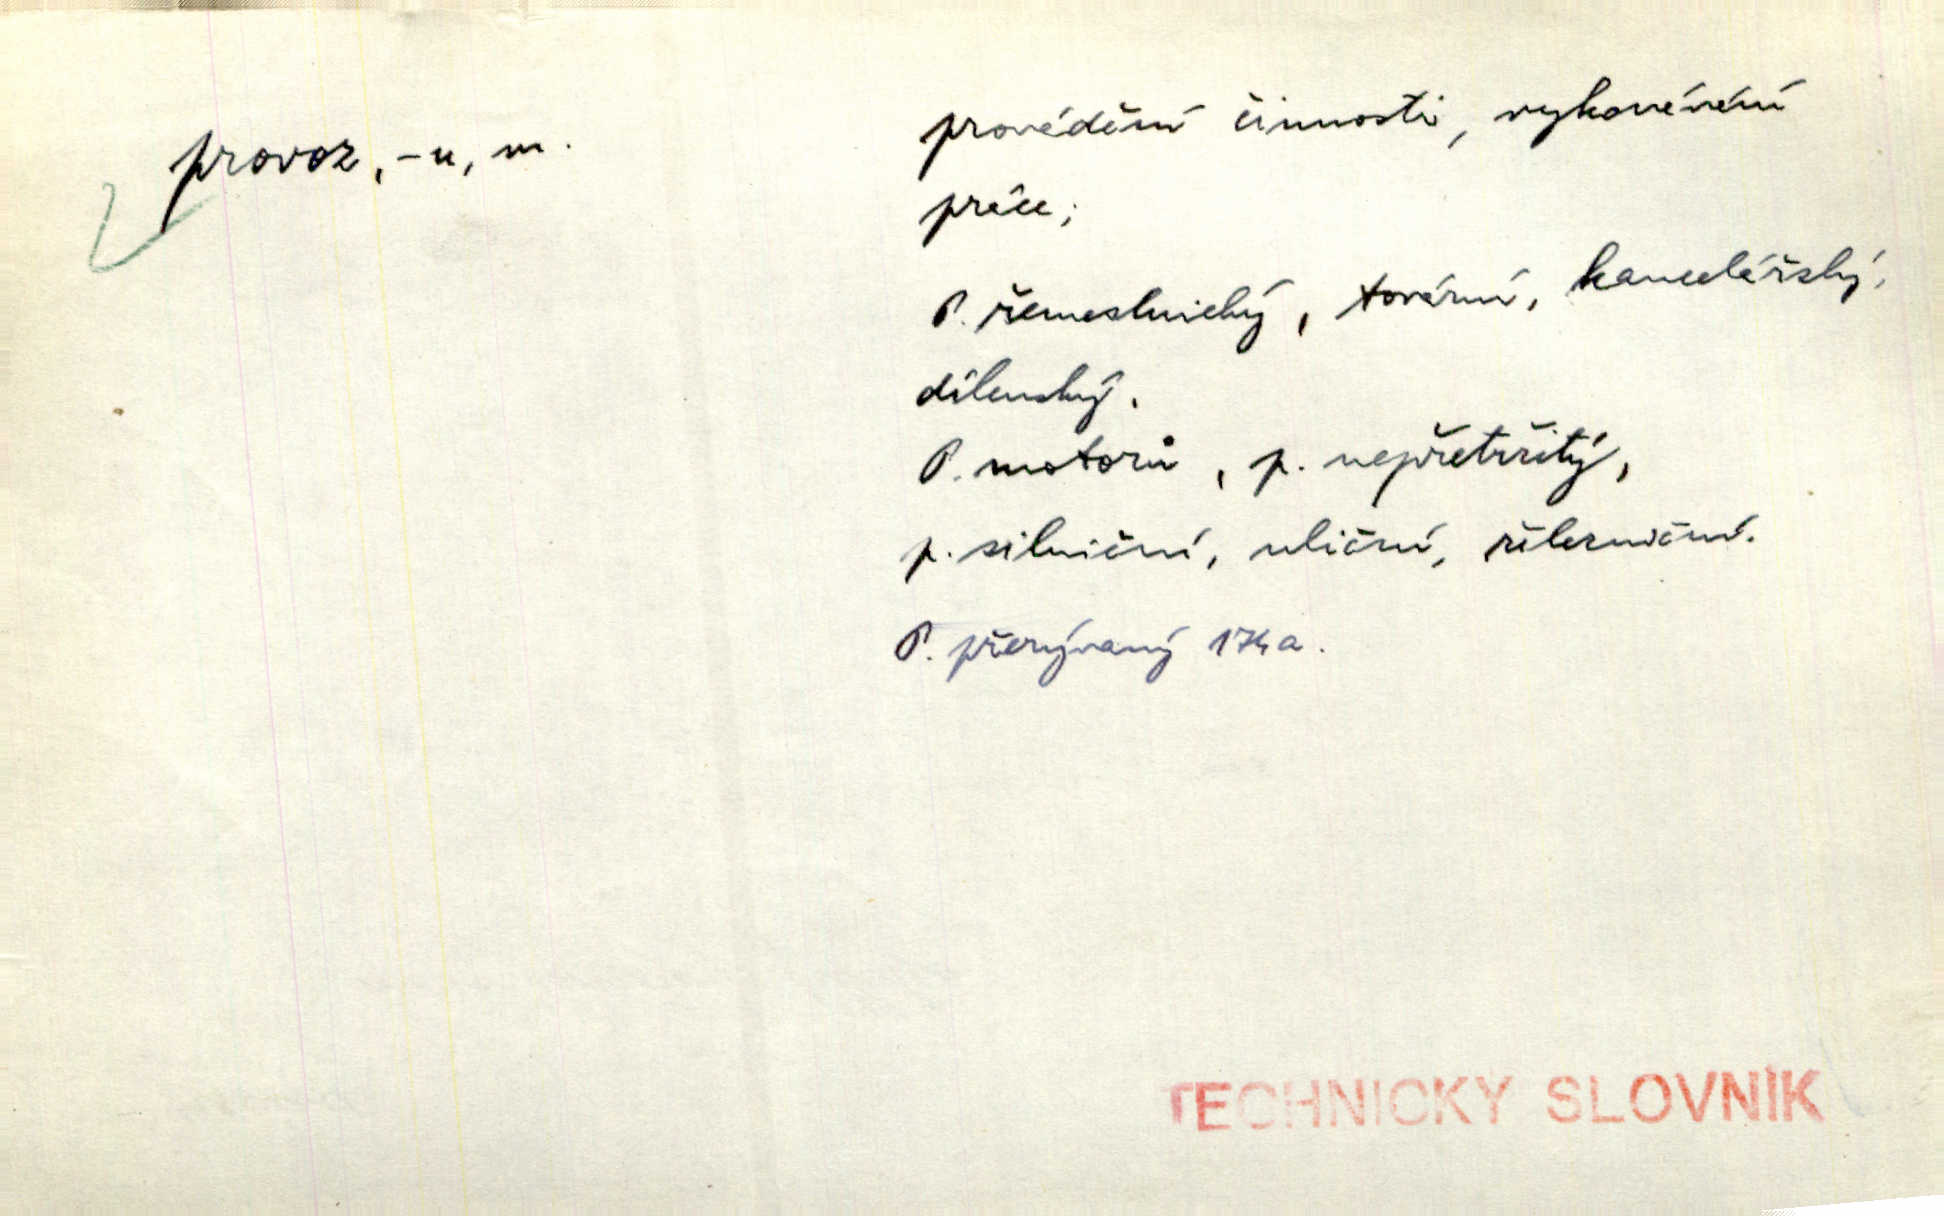 provoz, -u, m.
provádění činnosti, vykonávání
práce;
P. řemeslnický, tovární, kancelářský,
dílenský.
P. motorů, p. nepřetržitý,
p. silniční, uliční, železniční.
P. přerývaný 174a.
TECHNICKÝ SLOVNÍK